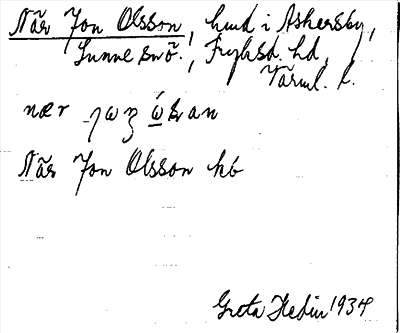 När Jon Olsson, hmd i Askersby,
Sunne snö., Fryksd. hd,
Värml. l.
nær jωꝫ ώsan
När Jon Olsson hb
Greta Hedin 1934